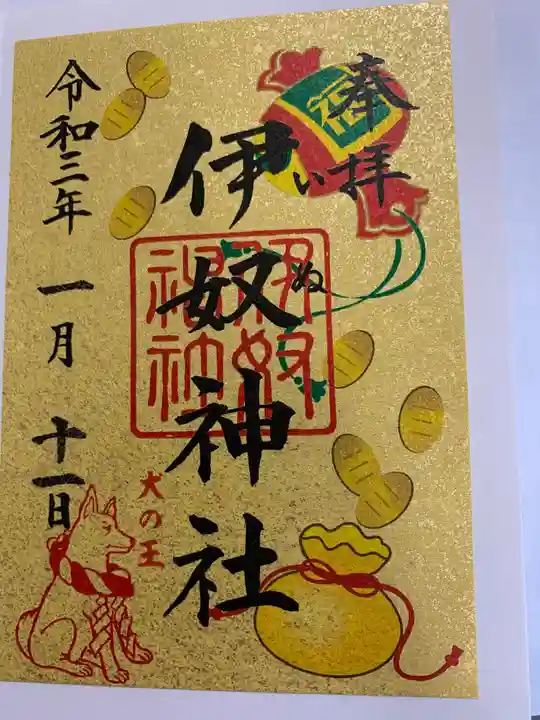 奉拝
伊奴神社
いぬ
令和三年 一月 十一日
犬の王
福
伊奴
神社